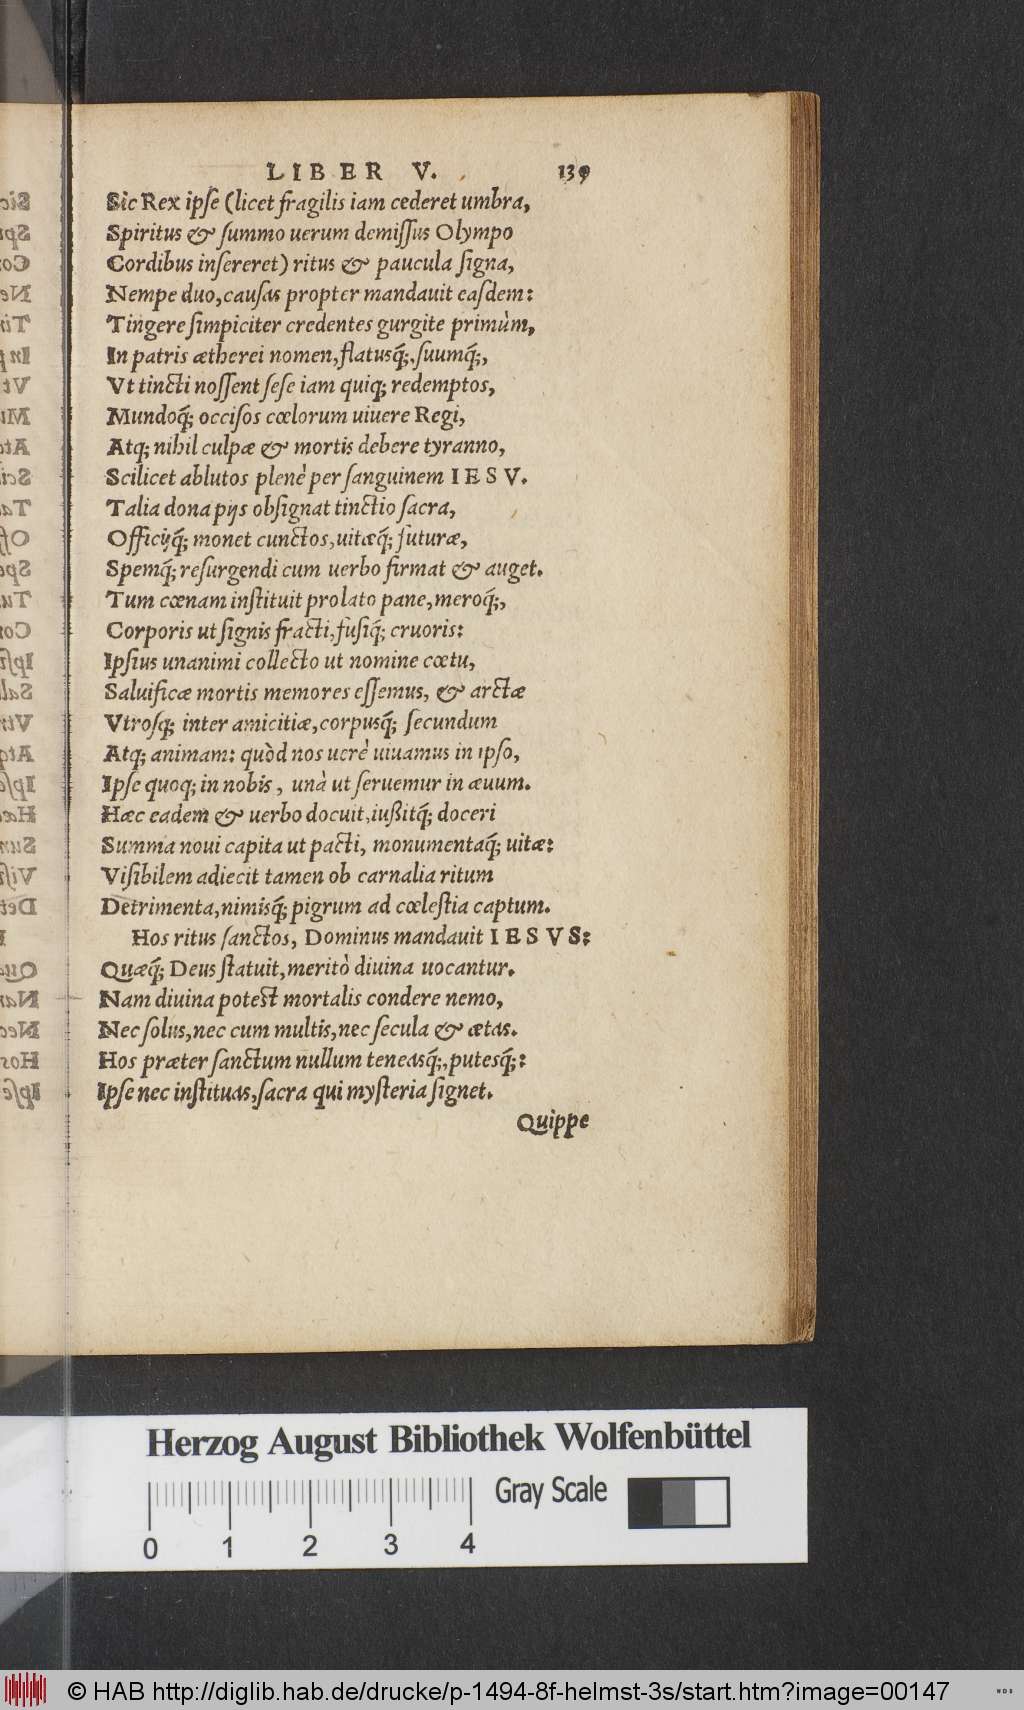 LIBER V. 139
Sic Rex ipſe (licet fragilis iam cederet umbra,
Spiritus & ſummo uerum demiſſus Olympo
Cordibus inſereret) ritus & paucula ſigna,
Nempe duo, cauſas propter mandauit eaſdem:
Tingere ſimpiciter credentes gurgite primùm,
In patris ætherei nomen, flatusq́;, ſuumq́;,
Vt tincti noſſent ſeſe iam quiq; redemptos,
Mundoq́; occiſos cœlorum uiuere Regi,
Atq; nihil culpæ & mortis debere tyranno,
Scilicet ablutos plenè per ſanguinem IESV.
Talia dona pijs obſignat tinctio ſacra,
Officijq́; monet cunctos, uitæq́; futuræ,
Spemq́; reſurgendi cum uerbo firmat & auget.
Tum cœnam inſtituit prolato pane, meroq́;,
Corporis ut ſignis fracti, fuſiq́; cruoris:
Ipſius unanimi collecto ut nomine cœtu,
Saluificæ mortis memores eſſemus, & arctæ
Vtroſq; inter amicitiæ, corpusq́; ſecundum
Atq; animam: quòd nos uerè uiuamus in ipſo,
Ipſe quoq; in nobis, unà ut ſeruemur in æuum.
Hæc eadem & uerbo docuit, iußitq́; doceri
Summa noui capita ut pacti, monumentaq́; uitæ:
Viſibilem adiecit tamen ob carnalia ritum
Detrimenta, nimisq́; pigrum ad cœleſtia captum.
Hos ritus ſanctos, Dominus mandauit IESVS:
Quæq́; Deus ſtatuit, meritò diuina uocantur.
Nam diuina poteſt mortalis condere nemo,
Nec ſolus, nec cum multis, nec ſecula & ætas.
Hos præter ſanctum nullum teneasq́;, putesq́;:
Ipſe nec inſtituas, ſacra qui myſteria ſignet.
Quippe
Herzog August Bibliothek Wolfenbüttel
Gray Scale
0 1 2 3 4
© HAB http://diglib.hab.de/drucke/p-1494-8f-helmst-3s/start.htm?image=00147